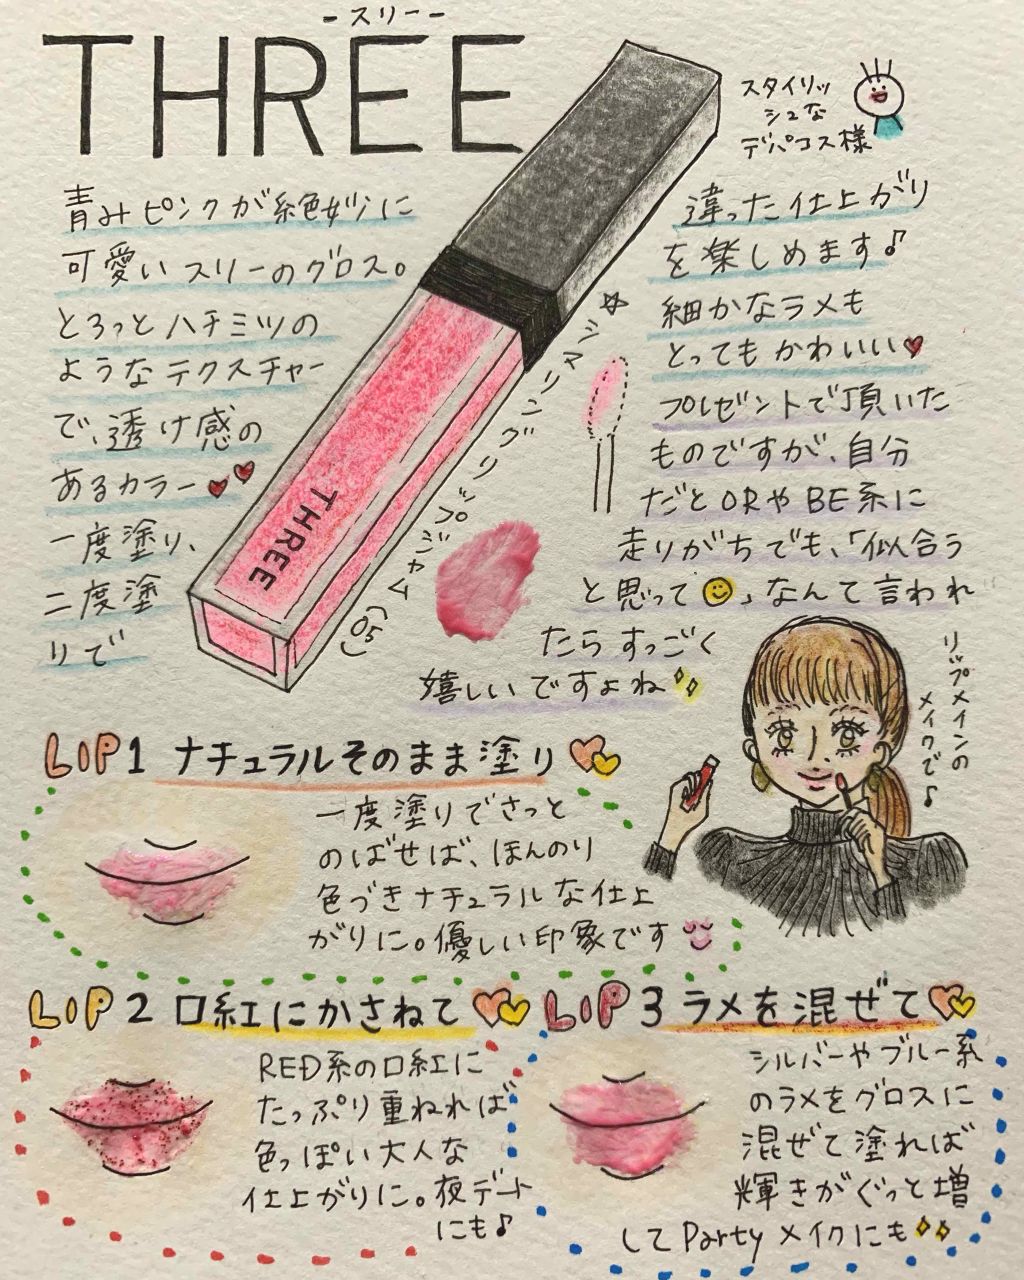 -スリー-
THREE
スタイリッ
シュな
デパコス様
青みピンクが絶妙に
可愛いスリーのグロス。
とろっとハチミツの
ようなテクスチャー
で、透け感の
あるカラー
一度塗り、
二度塗
りで
違った仕上がり
を楽しめます♪
細かなラメも
とってもかわいい
プレゼントで頂いた
ものですが、自分
だとORやBE系に
走りがちでも、「似合う
と思って」なんて言われ
たらすっごく
嬉しいですよね
THREE
シマリングリップジャム(05)
リップメインの
メイクで♪
LIP1 ナチュラルそのまま塗り
一度塗りでさっと
のばせば、ほんのり
色づきナチュラルな仕上
がりに。優しい印象です
LIP2 口紅にかさねて
RED系の口紅に
たっぷり重ねれば
色っぽい大人な
仕上がりに。夜デート
にも♪
LIP3 ラメを混ぜて
シルバーやブルー系
のラメをグロスに
混ぜて塗れば
輝きがぐっと増
してPartyメイクにも